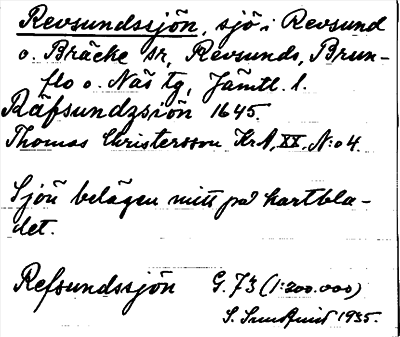 Revsundssjön, sjö i Revsund
o. Bräcke sr, Revsunds, Brun-
flo o. Näs tg, Jämtl. l.
Räfsundzsiön 1645.
Thomas Christersson KrA, XX, N:o 4.
Sjön belägen mitt på kartbla-
det.
Refsundssjön G. 73 (1:200.000)
S. 1935.